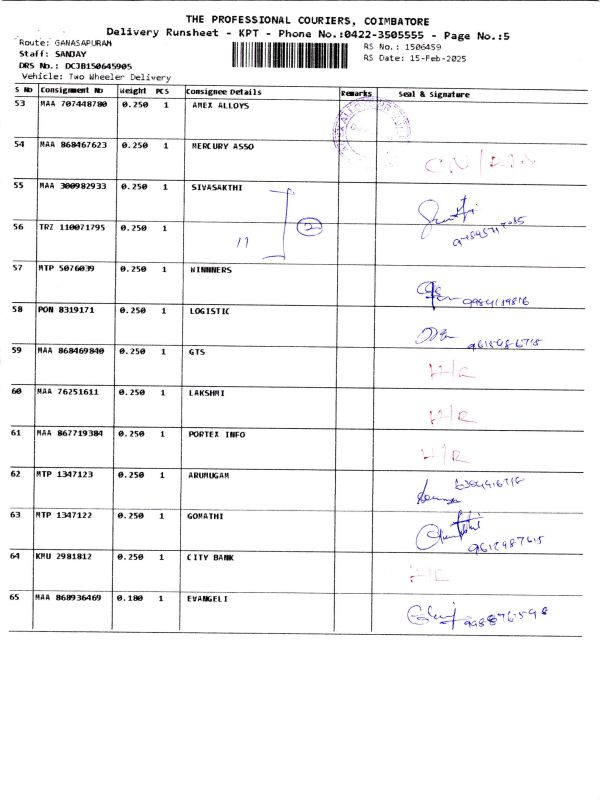 THE PROFESSIONAL COURIERS, COIMBATORE
Delivery Runsheet - KPT - Phone No.:0422-3505555 - Page No.:5
Route: GANASAPURAM
RS No. : 1506459
Staff: SANJAY
RS Date: 15-Feb-2025
DRS No.: DCJB150645905
Vehicle: Two Wheeler Delivery
S No Consignment No Weight PCS Consignee Details Remarks Seal & Signature
53 MAA 707448780 0.250 1 AMEX ALLOYS
54 MAA 868467623 0.250 1 MERCURY ASSO
55 MAA 300982933 0.250 1 SIVASAKTHI
56 TRZ 110071795 0.250 1 11 2
57 MTP 5076039 0.250 1 WINNNERS
58 PON 8319171 0.250 1 LOGISTIC
59 MAA 868469840 0.250 1 GTS
60 MAA 76251611 0.250 1 LAKSHMI
61 MAA 867719384 0.250 1 PORTEX INFO
62 MTP 1347123 0.250 1 ARUMUGAM
63 MTP 1347122 0.250 1 GOMATHI
64 KMU 2981812 0.250 1 CITY BANK
65 MAA 868936469 0.180 1 EVANGELI